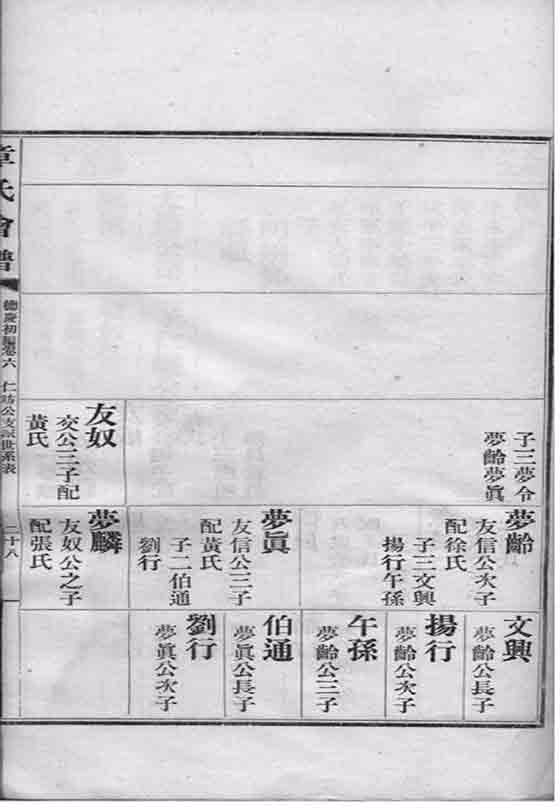 子三夢令
夢齡夢眞
友奴
交公三子配
黃氏
夢齡
友信公次子
配徐氏
子三文興
揚行午孫
夢眞
友信公三子
配黃氏
子二伯通
劉行
夢麟
友奴公之子
配張氏
文興
夢齡公長子
揚行
夢齡公次子
午孫
夢齡公三子
伯通
夢眞公長子
劉行
夢眞公次子
章氏會譜
德慶初編卷六 仁昉公支派世系表
二十八